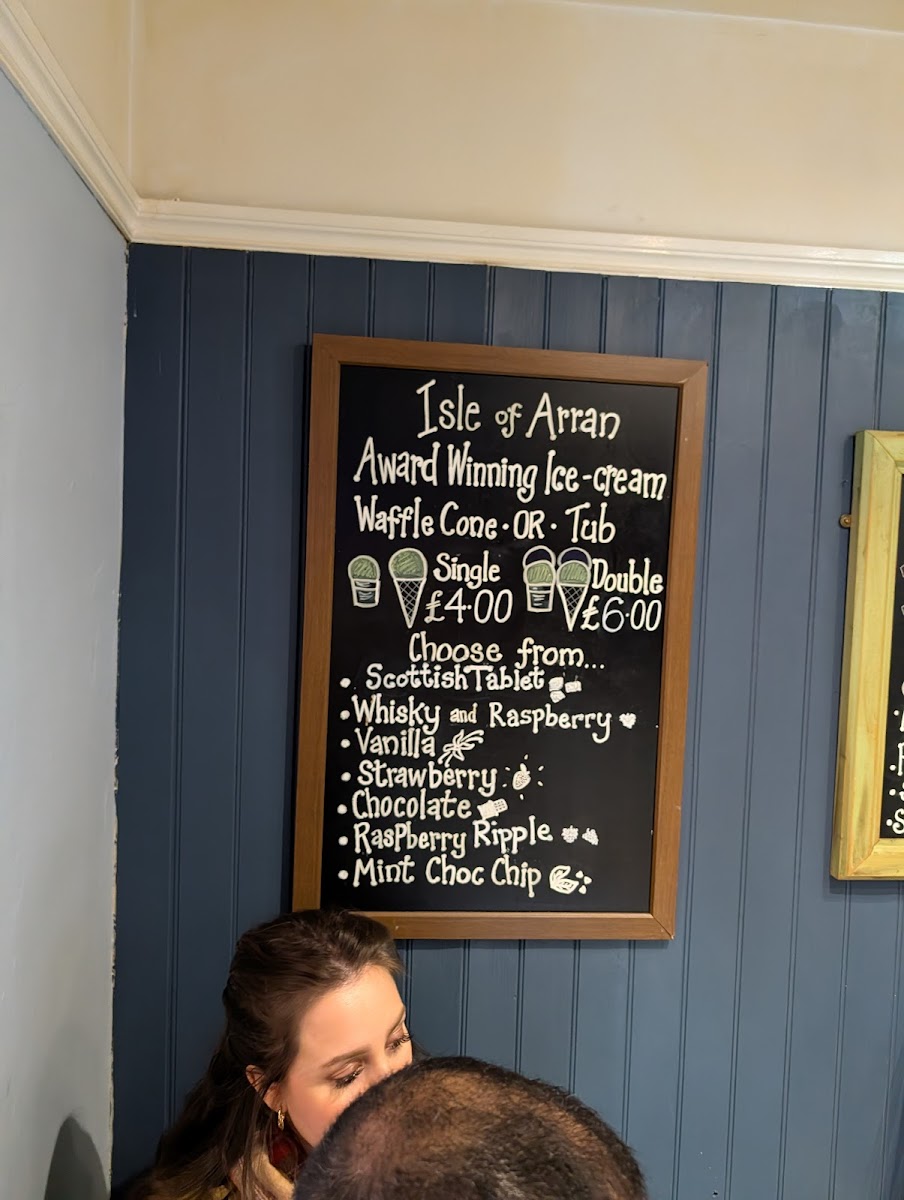 Isle of Arran
Award Winning Ice-cream
Waffle Cone · OR · Tub
Single Double
£4·00 £6·00
Choose from...
• Scottish Tablet
• Whisky and Raspberry
• Vanilla
• Strawberry
• Chocolate
• Raspberry Ripple
• Mint Choc Chip